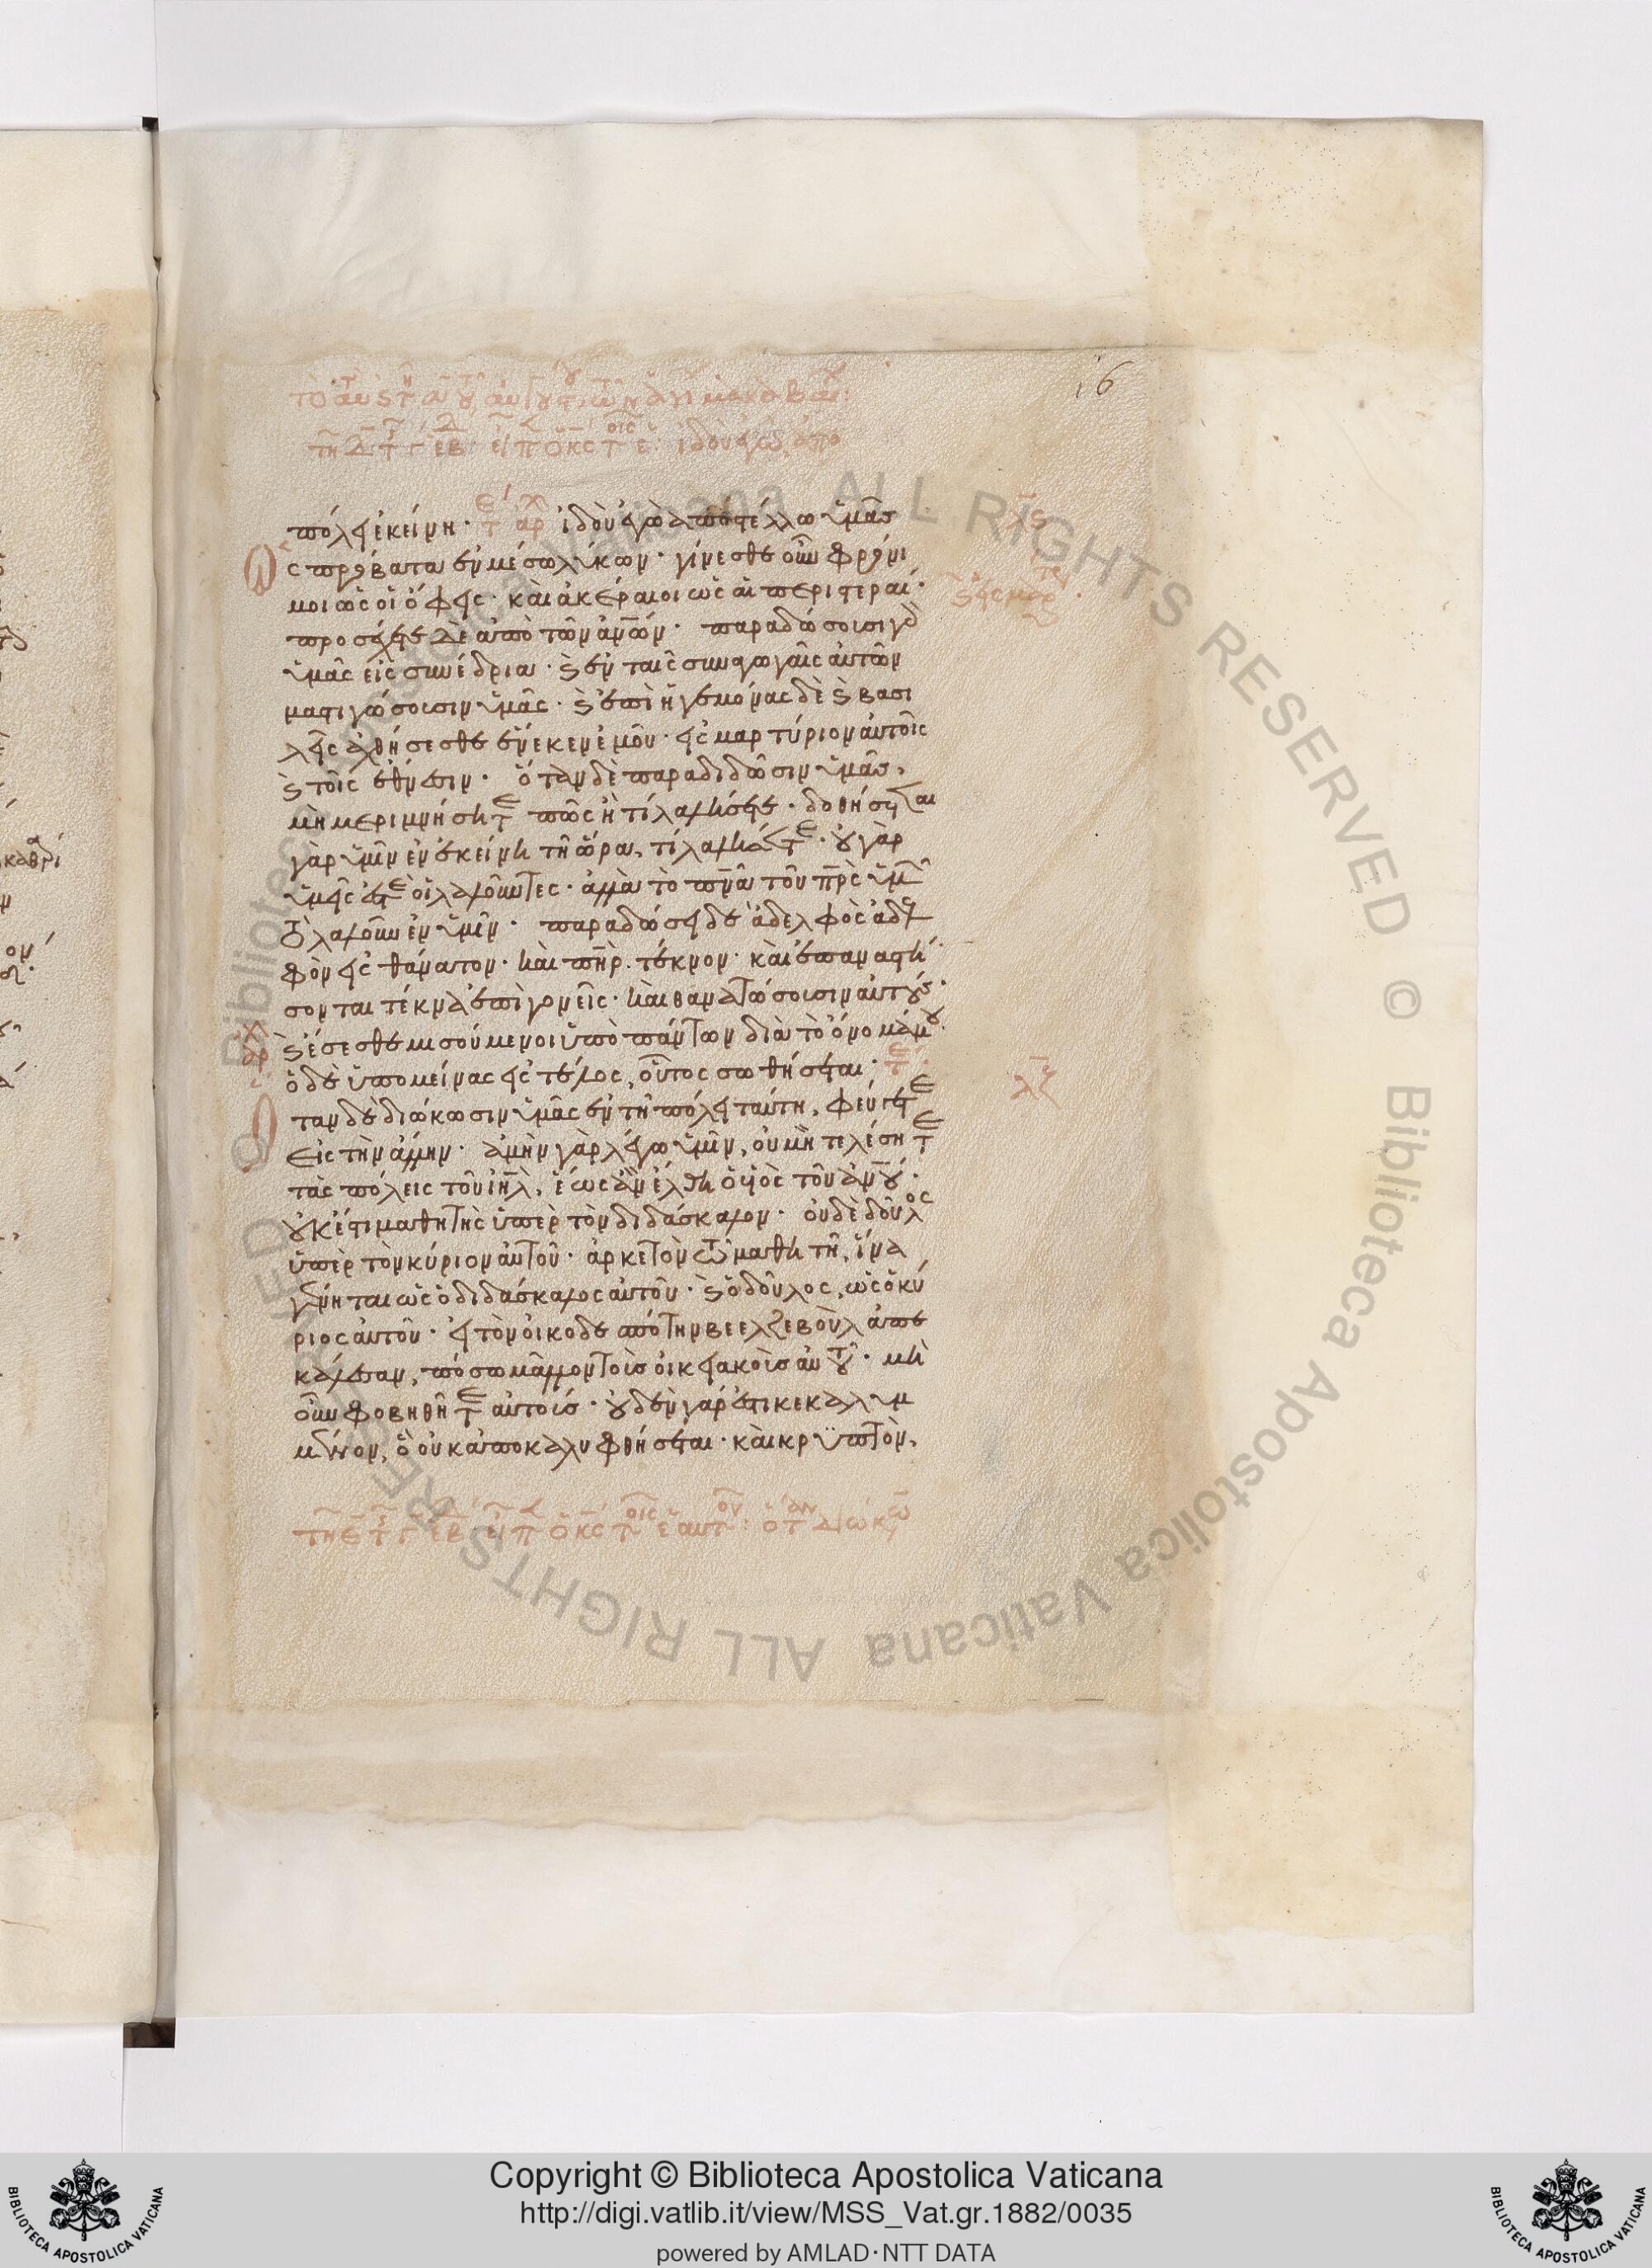 16
πόλει ἐκείνη· ἰδοὺ ἐγὼ ἀποστέλλω ὑμᾶσ
ὡς πρόβατα ἐν μέσω λύκων· γίνεσθε οὖν φρόνι
μοι ὡς οἱ ὄφεις· καὶ ἀκέραιοι ὡς αἱ περιστεραί·
προσέχετε δὲ ἀπὸ τῶν ἀν̅ων· παραδώσουσι γὰρ
ὑμᾶς εἰς συνέδρια· καὶ ἐν ταῖς συναγωγαῖς αὐτῶν
μαστιγώσουσιν ὑμᾶς· καὶ ἐπὶ ἡγεμόνας δὲ καὶ βασι
λεῖς ἀχθήσεσθε ἕνεκεν ἐμοῦ· εἰς μαρτύριον αὐτοῖς
καὶ τοῖς ἔθνεσιν· ὅταν δὲ παραδιδῶσιν ὑμᾶσ,
μὴ μεριμνήσητε πῶς ἢ τί λαλήσετε· δοθήσεται
γὰρ ὑμῖν ἐν ἐκείνη τῆ ὥρα, τί λαλήσετε· οὐ γὰρ
ὑμεῖς ἐστὲ οἱ λαλοῦντες· ἀλλὰ τὸ πν̅α τοῦ πρ̅ς ὑμῶν
τὸ λαλοῦν ἐν ὑμῖν· παραδώσει δὲ ἀδελφὸς ἀδελ
φὸν εἰς θάνατον· καὶ πη̅ρ τέκνον· καὶ ἐπαναστή
σονται τέκνα ἐπὶ γονεῖς· καὶ θανατώσουσιν αὐτούς·
καὶ ἔσεσθε μισούμενοι ὑπὸ πάντων διὰ τὸ ὄνομά μου·
ὁ δὲ ὑπομείνας εἰς τέλος, οὗτος σωθήσεται·
Ὅταν δὲ διώκωσιν ὑμᾶς ἐν τῆ πόλει ταύτη, φεύγετε
εἰς τὴν ἄλλην· ἀμὴν γὰρ λέγω ὑμῖν, οὐ μὴ τελέσητε
τὰς πόλεις τοῦ ιη̅λ, ἕως ἂν ἔλθη ὁ υἱὸς τοῦ ἀν̅ου·
οὐκ ἔστι μαθητὴς ὑπὲρ τὸν διδάσκαλον· οὐδὲ δοῦλος
ὑπὲρ τὸν κύριον αὐτοῦ· ἀρκετὸν τῶ μαθητῆ, ἵνα
γένηται ὡς ὁ διδάσκαλος αὐτοῦ· καὶ ὁ δοῦλος, ὡς ὁ κύ
ριος αὐτοῦ· εἰ τὸν οἰκοδεσπότην βεελζεβοὺλ ἀπε
κάλεσαν, πόσω μᾶλλον τοὺσ οἰκειακοὺσ αὐτοῦ· μὴ
οὖν φοβηθῆτε αὐτούσ· οὐδὲν γάρ ἐστι κεκαλυμ
μένον, ὃ οὐκ ἀποκαλυφθήσεται· καὶ κρυπτὸν,
Copyright © Biblioteca Apostolica Vaticana
http://digi.vatlib.it/view/MSS_Vat.gr.1882/0035
powered by AMLAD·NTT DATA
BIBLIOTECA APOSTOLICA VATICANA
BIBLIOTECA APOSTOLICA VATICANA